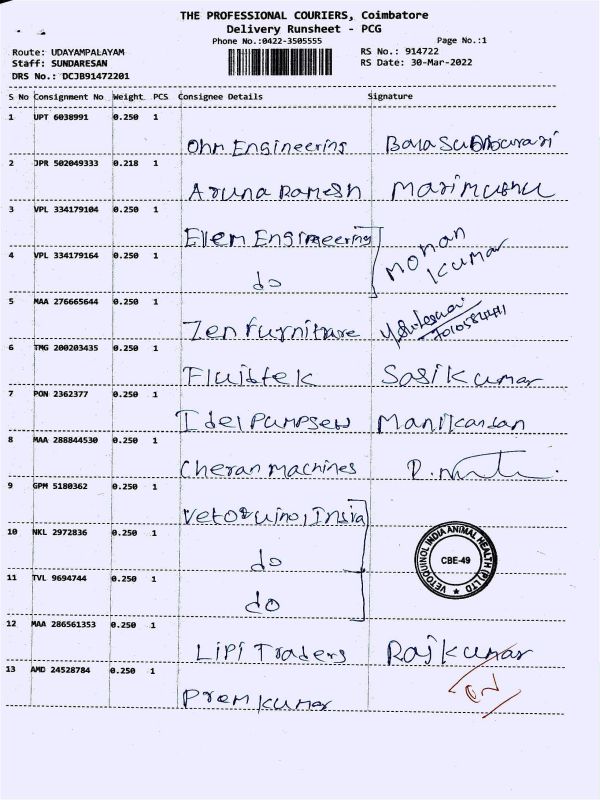 THE PROFESSIONAL COURIERS, Coimbatore
Delivery Runsheet - PCG
Phone No.:0422-3505555
Page No.:1
Route: UDAYAMPALAYAM
RS No.: 914722
Staff: SUNDARESAN
RS Date: 30-Mar-2022
DRS No.: DCJB91472201
S No Consignment No Weight PCS Consignee Details Signature
1 UPT 6038991 0.250 1
Ohm Engineering
2 JPR 502049333 0.218 1
Aruna Ramesh Marimuthu
3 VPL 334179104 0.250 1
Elem Engineering Mohan Kumar
4 VPL 334179164 0.250 1
do
5 MAA 276665644 0.250 1
Zen Furniture
6 TMG 200203435 0.250 1
Fluidtek Sasikumar
7 PON 2362377 0.250 1
Idel Pumpsets Manikandan
8 MAA 288844530 0.250 1
Cheran Machines
9 GPM 5180362 0.250 1
Vetoquinol India
10 NKL 2972836 0.250 1
do
VETOQUINOL INDIA ANIMAL HEALTH (P) LTD
CBE-49
11 TVL 9694744 0.250 1
do
12 MAA 286561353 0.250 1
Lipi Traders Rajkumar
13 AMD 24528784 0.250 1
Prem Kumar